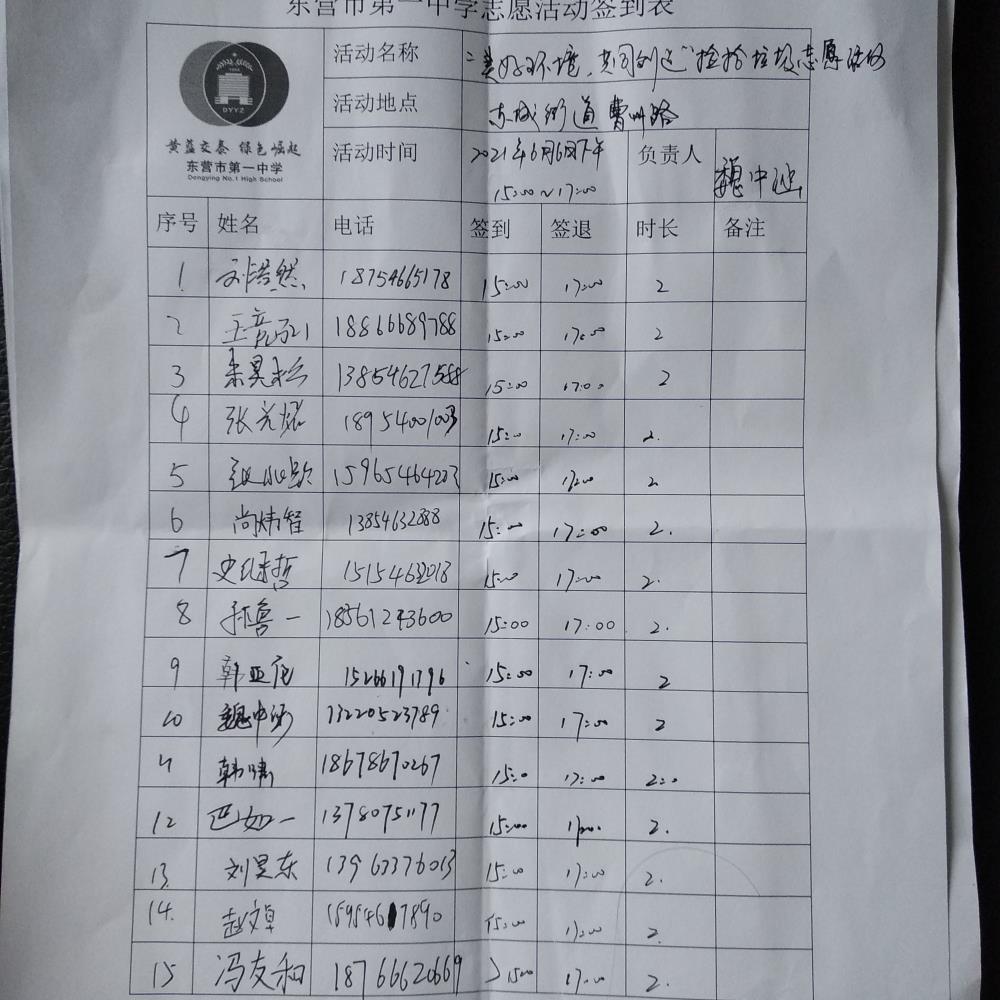 东营市第一中学志愿活动签到表
DYYZ
黄蓝交泰 绿色崛起
东营市第一中学
Dongying No.1 High School
活动名称 "美好环境,共同创造"捡拾垃圾志愿活动
活动地点 东城街道曹州路
活动时间 2021年6月6日下午 15:00~17:00 负责人 魏中
序号 姓名 电话 签到 签退 时长 备注
1 刘浩然 18754665178 15:00 17:00 2
2 王 18866689788 15:00 17:00 2
3 朱昊 13854627588 15:00 17:00 2
4 张光耀 18954001003 15:0 17:00 2.
5 15965464203 15:00 17:00 2
6 尚炜智 13854632888 15:00 17:00 2.
7 史 哲 15154632013 15:00 17:00 2.
8 孙鲁一 18561243600 15:00 17:00 2.
9 韩亚 15266191796 15:00 17:00 2
10 魏中 13220523789 15:00 17:00 2
11 韩啸 18678670267 15:0 17:00 2:0
12 巴如一 13780751177 15:00 17:00. 2.
13 刘昊东 13963376013 15:00 17:00 2.
14. 赵文卓 15954617890 15:00 17:00 2.
15 冯友和 18766620669 15:00 17:00 2.